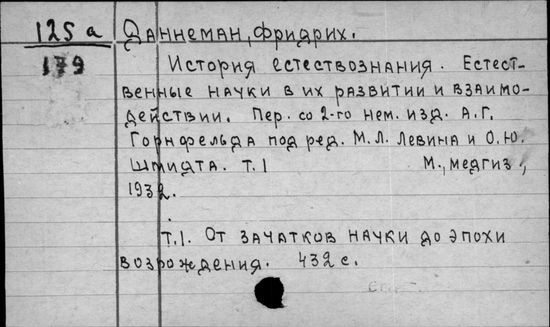 125 а Даннеман, Фридрих.
179 История естествознания. Естест-
венные науки в их развитии и взаимо-
действии. Пер. со 2-го нем. изд. А.Г.
Горнфельда под ред. М.Л. Левина и О.Ю.
Шмидта. Т.1 М., Медгиз,
1932.
Т.1. От зачатков науки до эпохи
возрождения. 432 с.